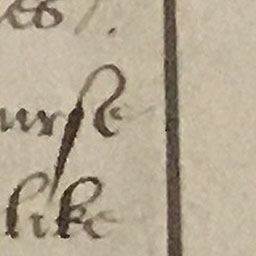 urſe
like